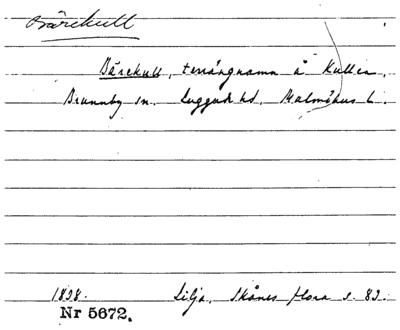 Bärekull
Bärekull, terrängnamn å Kullen,
Brunnby sn. Luggude hd, Malmöhus l.
1838. Lilja, Skånes flora s. 83.
Nr 5672.